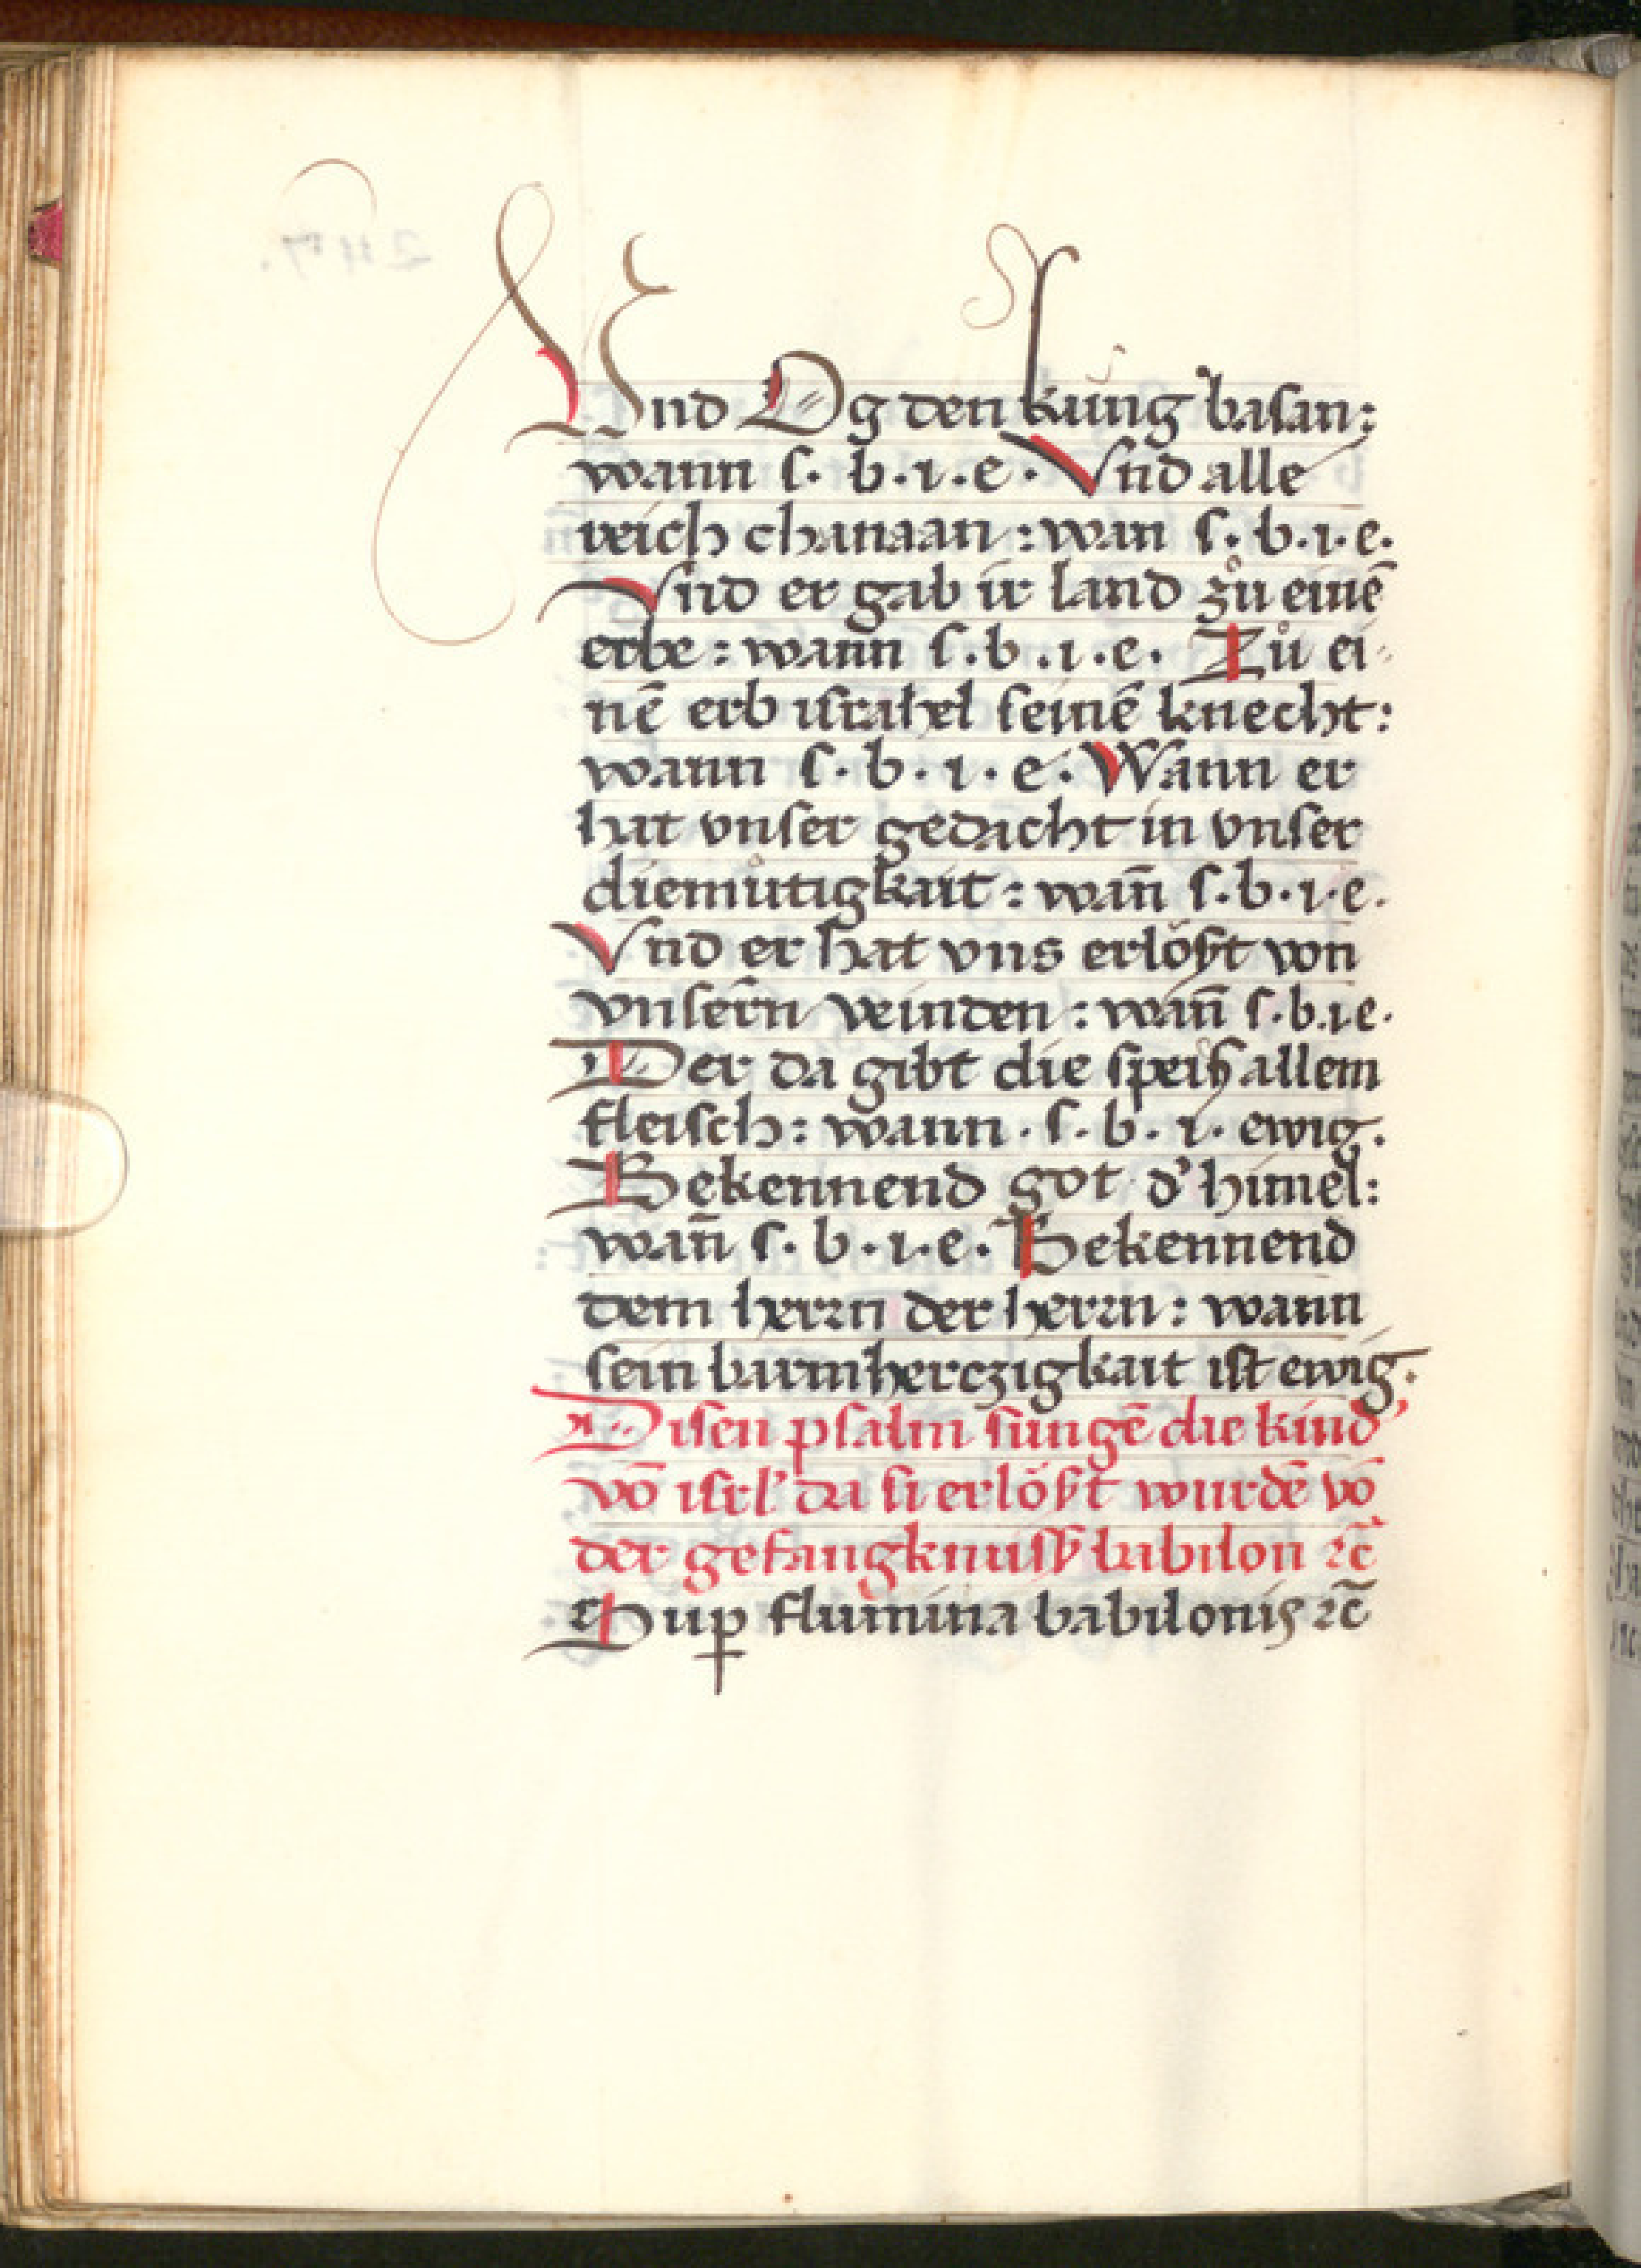 Vnd Og den kúnig basan:
wann s. b. i. e. Vnd alle
reich chanaan: wan s. b. i. e.
Vnd er gab ir land zů einē
erbe: wann s. b. i. e. Zů ei-
nē erb israhel seinē knecht:
wann s. b. i. e. Wann er
hat vnser gedacht in vnser
diemůtigkait: wan̄ s. b. i. e.
Vnd er hat vns erlößt von
vnsern veinden: wan̄ s. b. i. e.
Der da gibt die speiß allem
fleisch: wann. s. b. i. ewig.
Bekennend got d' himel:
wan̄ s. b. i. e. Bekennend
dem herrn der herrn: wann
sein barmherczigkait ist ewig.
Disen psalm sungē die kind'
vō isrl' da si erlößt wurdē vō
der gefangknuss babilon ꝛc̄
Suꝑ flumina babilonis ꝛc̄